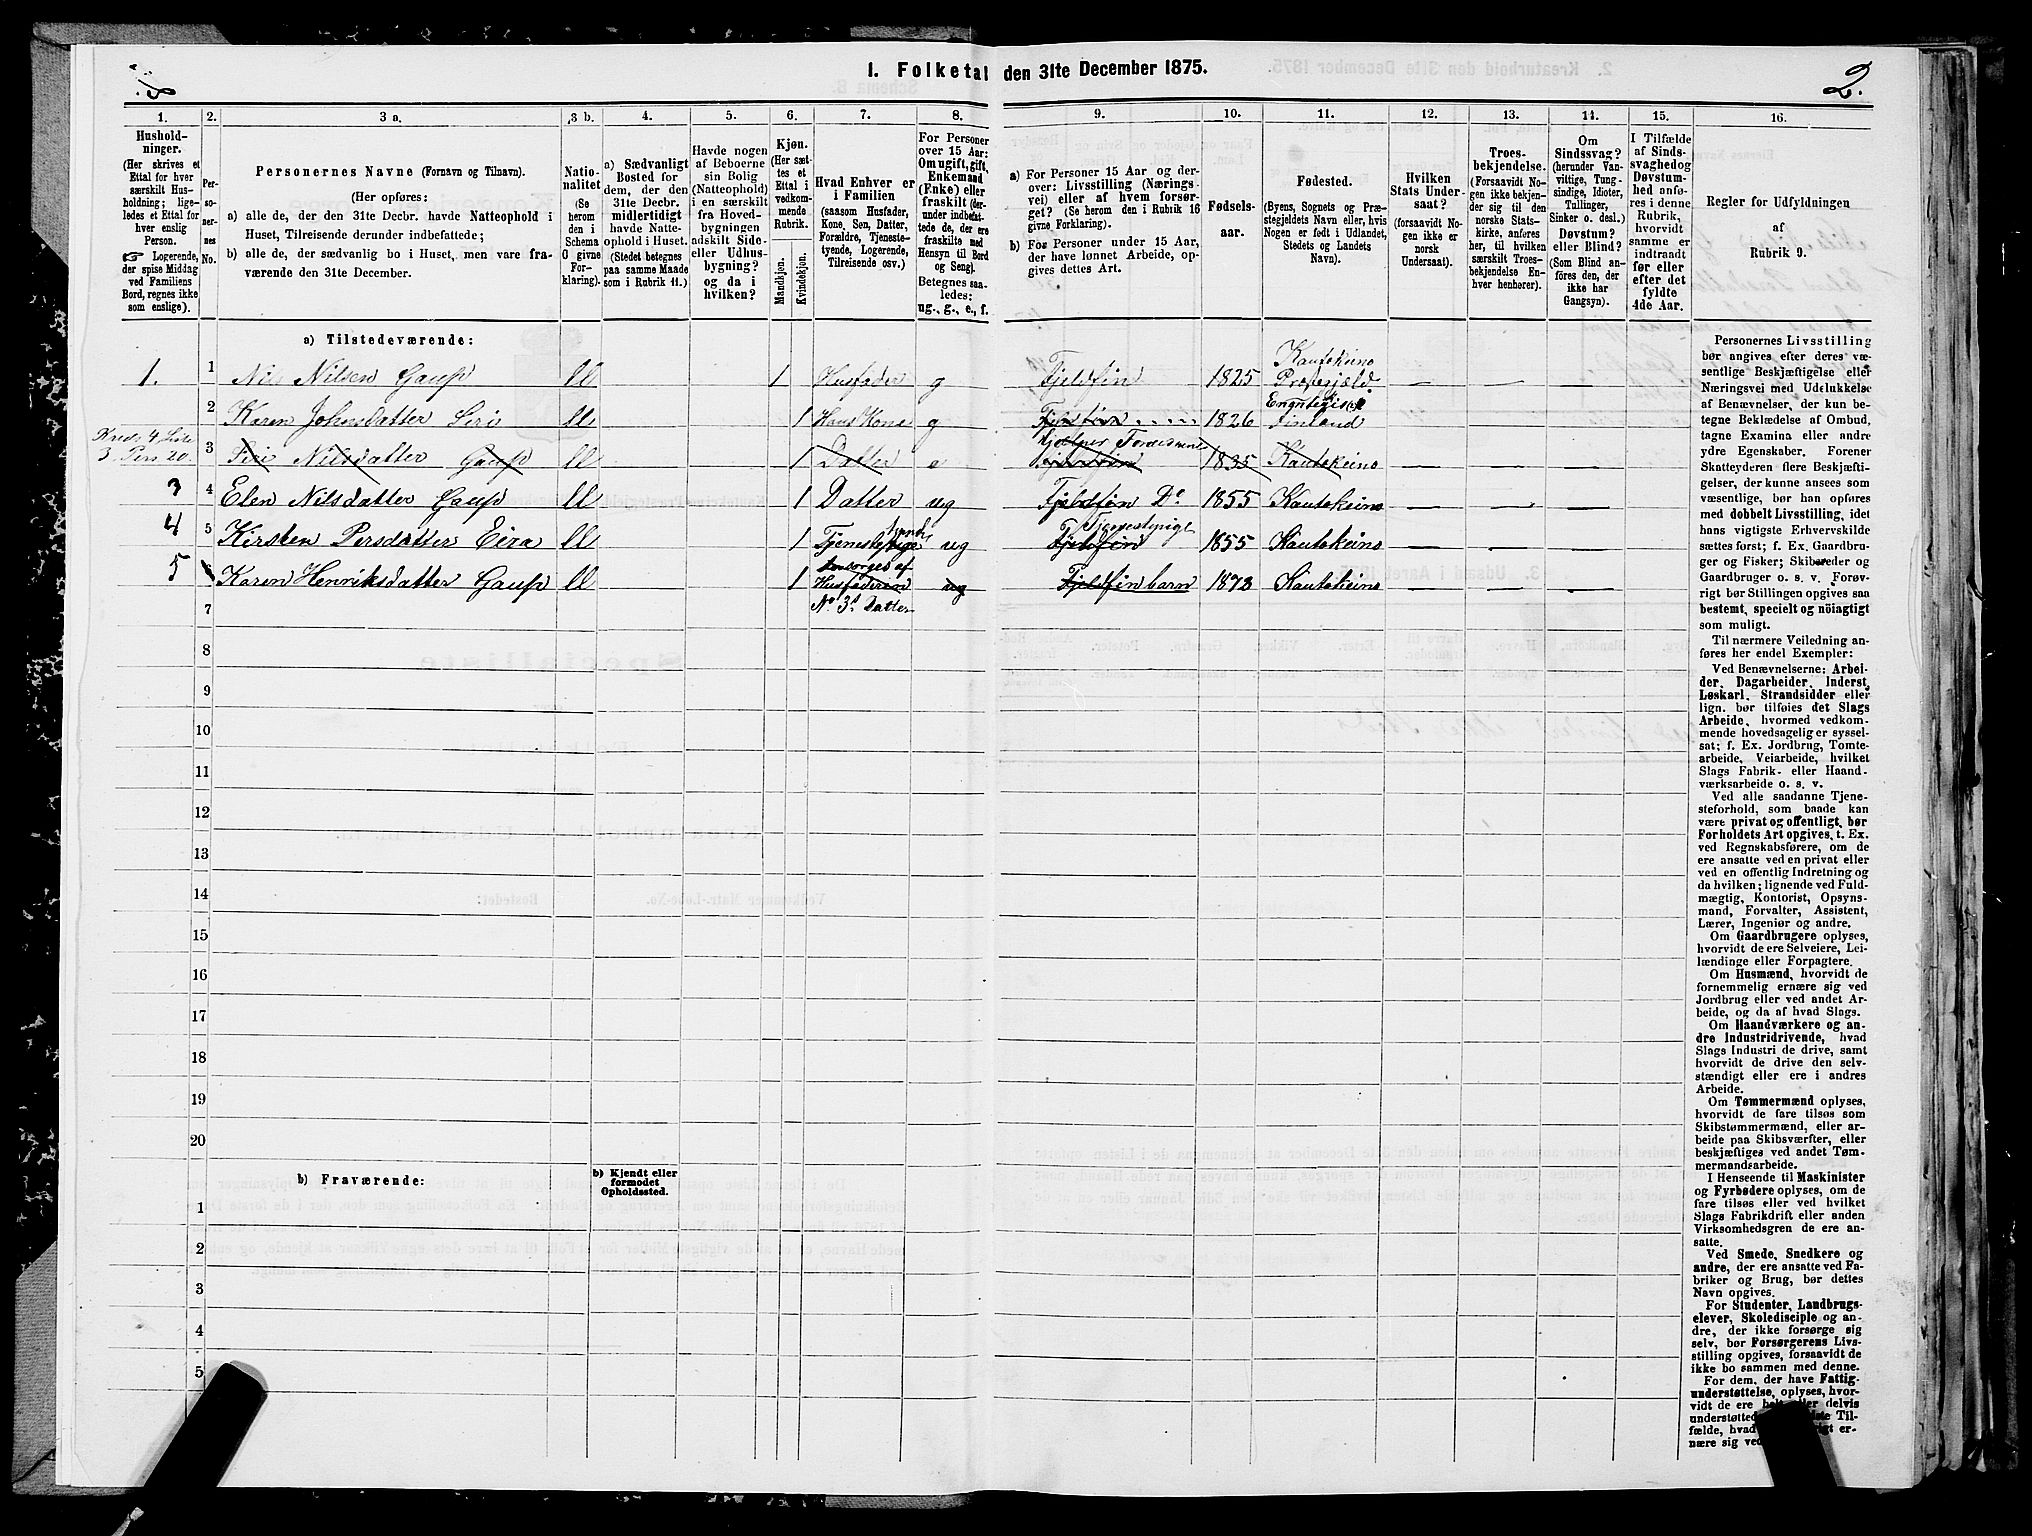 1. Folketal den 31te December 1875.
2.
1.
2.
3 a.
3 b.
4.
5.
6.
7.
8.
9.
10.
11.
12.
13.
14.
15.
16.
Hushold-
ninger.
(Her skrives et
Ettal for hver
særskilt Hus-
holdning; lige-
ledes et Ettal for
hver enslig
Person.
☞ Logerende,
der spise Middag
ved Familiens
Bord, regnes ikke
som enslige).
Per-
so-
ner-
nes
No.
Personernes Navne (Fornavn og Tilnavn).
(Her opføres:
a) alle de, der den 31te Decbr. havde Natteophold i
Huset, Tilreisende derunder indbefattede;
b) alle de, der sædvanlig bo i Huset, men vare fra-
værende den 31te December.
Natio-
nalitet
(Se
herom
den i
Schema
C givne
For-
klaring).
a) Sædvanligt
Bosted for
dem, der den
31te Decbr.
midlertidigt
havde Natte-
ophold i Huset.
(Stedet betegnes
paa samme Maade
som i Rubrik 11.)
Havde nogen
af Beboerne
sin Bolig
(Natteophold)
i en særskilt
fra Hoved-
bygningen
adskilt Side-
eller Udhus-
bygning?
og da i
hvilken?
Kjøn.
(Her sæt-
tes et
Ettal i
vedkom-
mende
Rubrik.
Mandkjøn.
Kvindekjøn.
Hvad Enhver er
i Familien
(saasom Husfader,
Kone, Søn, Datter,
Forældre, Tjeneste-
tyende, Logerende,
Tilreisende osv.)
For Personer
over 15 Aar:
Om ugift, gift,
Enkemand
(Enke) eller
fraskilt (der-
under indbefat-
tede de, der ere
fraskilte med
Hensyn til Bord
og Seng).
Betegnes saa-
ledes:
ug., g., e., f.
a) For Personer 15 Aar og der-
over: Livsstilling (Nærings-
vei) eller af hvem forsør-
get? (Se herom den i Rubrik 16
givne Forklaring).
b) For Personer under 15 Aar,
der have lønnet Arbeide, op-
gives dettes Art.
Fødsels-
aar.
Fødested.
(Byens, Sognets og Præ-
stegjeldets Navn eller, hvis
Nogen er født i Udlandet,
Stedets og Landets
Navn).
Hvilken
Stats Under-
saat?
(forsaavidt No-
gen ikke er
norsk
Undersaat).
Troes-
bekjendelse.
(Forsaavidt No-
gen ikke bekjen-
der sig til den
norske Stats-
kirke, anføres
her, til hvilken
særskilt Troes-
bekjendelse En-
hver henhører).
Om
Sindssvag?
(herunder Van-
vittige, Tung-
sindige, Idioter,
Tullinger,
Sinker o. desl.)
Døvstum?
eller Blind?
(Som Blind an-
føres den, der
ikke har
Gangsyn).
I Tilfælde
af Sinds-
svaghed og
Døvstum-
hed anfø-
res i denne
Rubrik,
hvorvidt
samme er
indtraadt
før eller
efter det
fyldte
4de Aar.
Regler for Udfyldningen
af
Rubrik 9.
a) Tilstedeværende:
1. 1 Nils Nilsen Gaup ll 1 Husfader g Fjeldfin 1825 Kautokeino Præstegjæld — — —
2 Karen Johnsdatter Siri ll 1 Hans Kone g Fjeldfin 1826 Enontegis(e) Finland — — —
Kreds 4 Liste
3. Pers 20. 3 Siri Nilsdatter Gaup ll 1 Datter Fjeldfin 1835 Kautokeino
3 4 Elen Nilsdatter Gaup ll 1 Datter ug Fjeldfin Do 1855 Kautokeino — — —
4 5 Kirsten Persdatter Eira ll 1 Tjenestepige ug Fjeldfin Tjenestepige 1855 Kautokeino — — —
5 6 Karen Henriksdatter Gaup ll 1 forsørges af Husfaderen No. 3s Datter ug Fjeldfin barn 1873 Kautokeino — — —
7
8
9
10
11
12
13
14
15
16
17
18
19
20
b) Fraværende:
b) Kjendt eller
formodet
Opholdssted.
1
2
3
4
5
Personernes Livsstilling
bør angives efter deres væ-
sentlige Beskjæftigelse eller
Næringsvei med Udelukkelse
af Benævnelser, der kun be-
tegne Beklædelse af Ombud,
tagne Examina eller andre
ydre Egenskaber. Forener
Skatteyderen flere Beskjæfti-
gelser, der kunne ansees som
væsentlige, bør han opføres
med dobbelt Livsstilling, idet
hans vigtigste Erhvervskilde
sættes først; f. Ex. Gaardbru-
ger og Fisker; Skibsreder og
Gaardbruger o. s. v. Forøv-
rigt bør Stillingen opgives saa
bestemt, specielt og nöiagtig
som muligt.
Til nærmere Veiledning an-
føres her endel Exempler:
Ved Benævnelserne: Arbei-
der, Dagarbeider, Inderst,
Løskarl, Strandsidder eller
lign. bør tilføies det Slags
Arbeide, hvormed vedkom-
mende hovedsagelig er syssel-
sat; f. Ex. Jordbrug, Tomte-
arbeide, Veiarbeide, hvilket
Slags Fabrik- eller Haand-
værksarbeide o. s. v.
Ved alle saadanne Tjene-
steforhold, som baade kan
være privat og offentligt, bør
Forholdets Art opgives, t. Ex.
ved Regnskabsførere, om de
ere ansatte ved en privat eller
ved en offentlig Indretning og
da hvilken; lignende ved Fuld-
mægtig, Kontorist, Opsyns-
mand, Forvalter, Assistent,
Lærer, Ingeniør og andre.
Om Gaardbrugere oplyses,
hvorvidt de ere Selveiere, Lei-
lændinge eller Forpagtere.
Om Husmænd, hvorvidt de
fornemmelig ernære sig ved
Jordbrug eller ved andet Ar-
beide, og da af hvad Slags.
Om Haandværkere og an-
dre Industridrivende, hvad
Slags Industri de drive, samt
hvorvidt de drive den selv-
stændigt eller ere i andres
Arbeide.
Om Tømmermænd oplyses,
hvorvidt de fare tilsøs som
Skibstømmermænd, eller ar-
beide paa Skibsværfter, eller
beskjæftiges ved andet Tøm-
mermandsarbeide.
I Henseende til Maskinister
og Fyrbødere oplyses, om de
fare tilsøs eller ved hvilket
Slags Fabrikdrift eller anden
Virksomhedsgren de ere an-
satte.
Ved Smede, Snedkere og
andre, der ere ansatte ved Fa-
briker og Brug, bør dettes
Navn opgives.
For Studenter, Landbrugs-
elever, Skoledisciple og an-
dre, der ikke forsørge sig
selv, bør Forsørgerens Livs-
stilling opgives, forsaavidt de
ikke bo sammen med denne.
For dem, der have Fattig-
understøttelse, oplyses, hvor-
vidt de ere delvis
understøttede Til-
fælde, hvad er-
nære sig ved